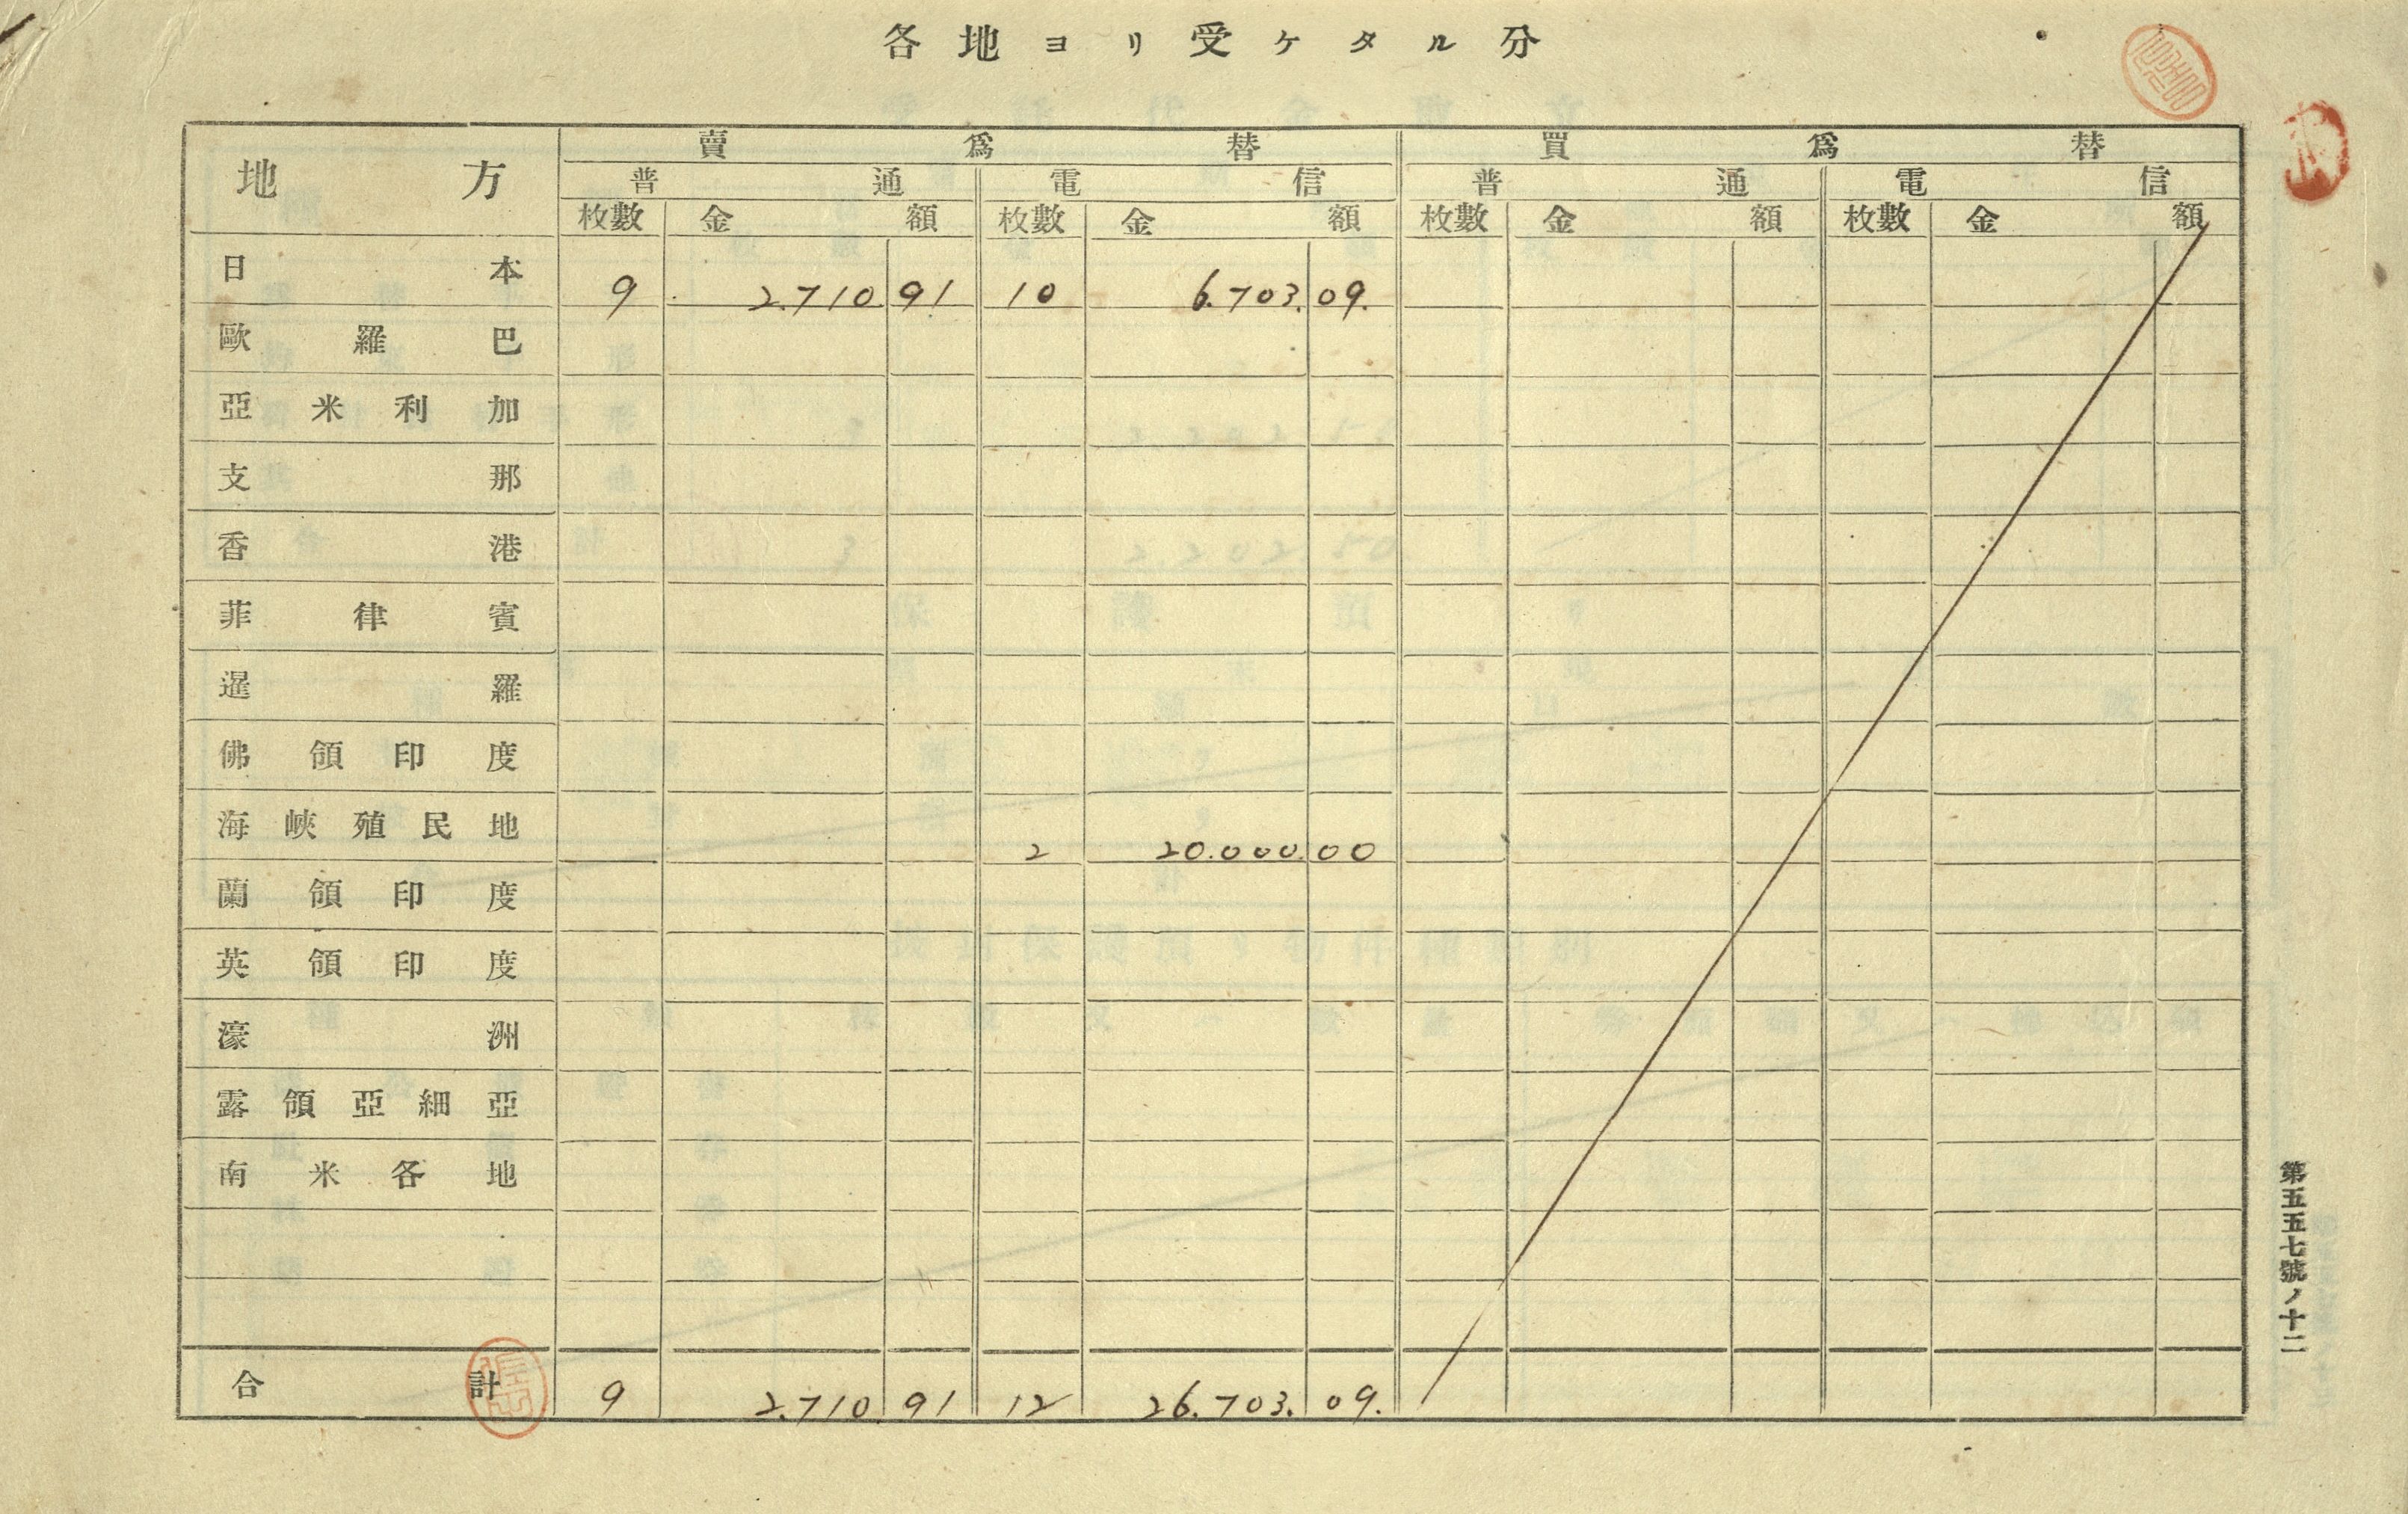 各地ヨリ受ケタル分
地方 賣爲替 買爲替
普通 電信 普通 電信
枚數 金額 枚數 金額 枚數 金額 枚數 金額
日本 9 2.710.91 10 6.703.09.
歐羅巴
亞米利加
支那
香港
菲律賓
暹羅
佛領印度
海峽殖民地 2 20.000.00
蘭領印度
英領印度
濠洲
露領亞細亞
南米各地
合計 9 2.710.91 12 26.703.09.
第五五七號ノ十二